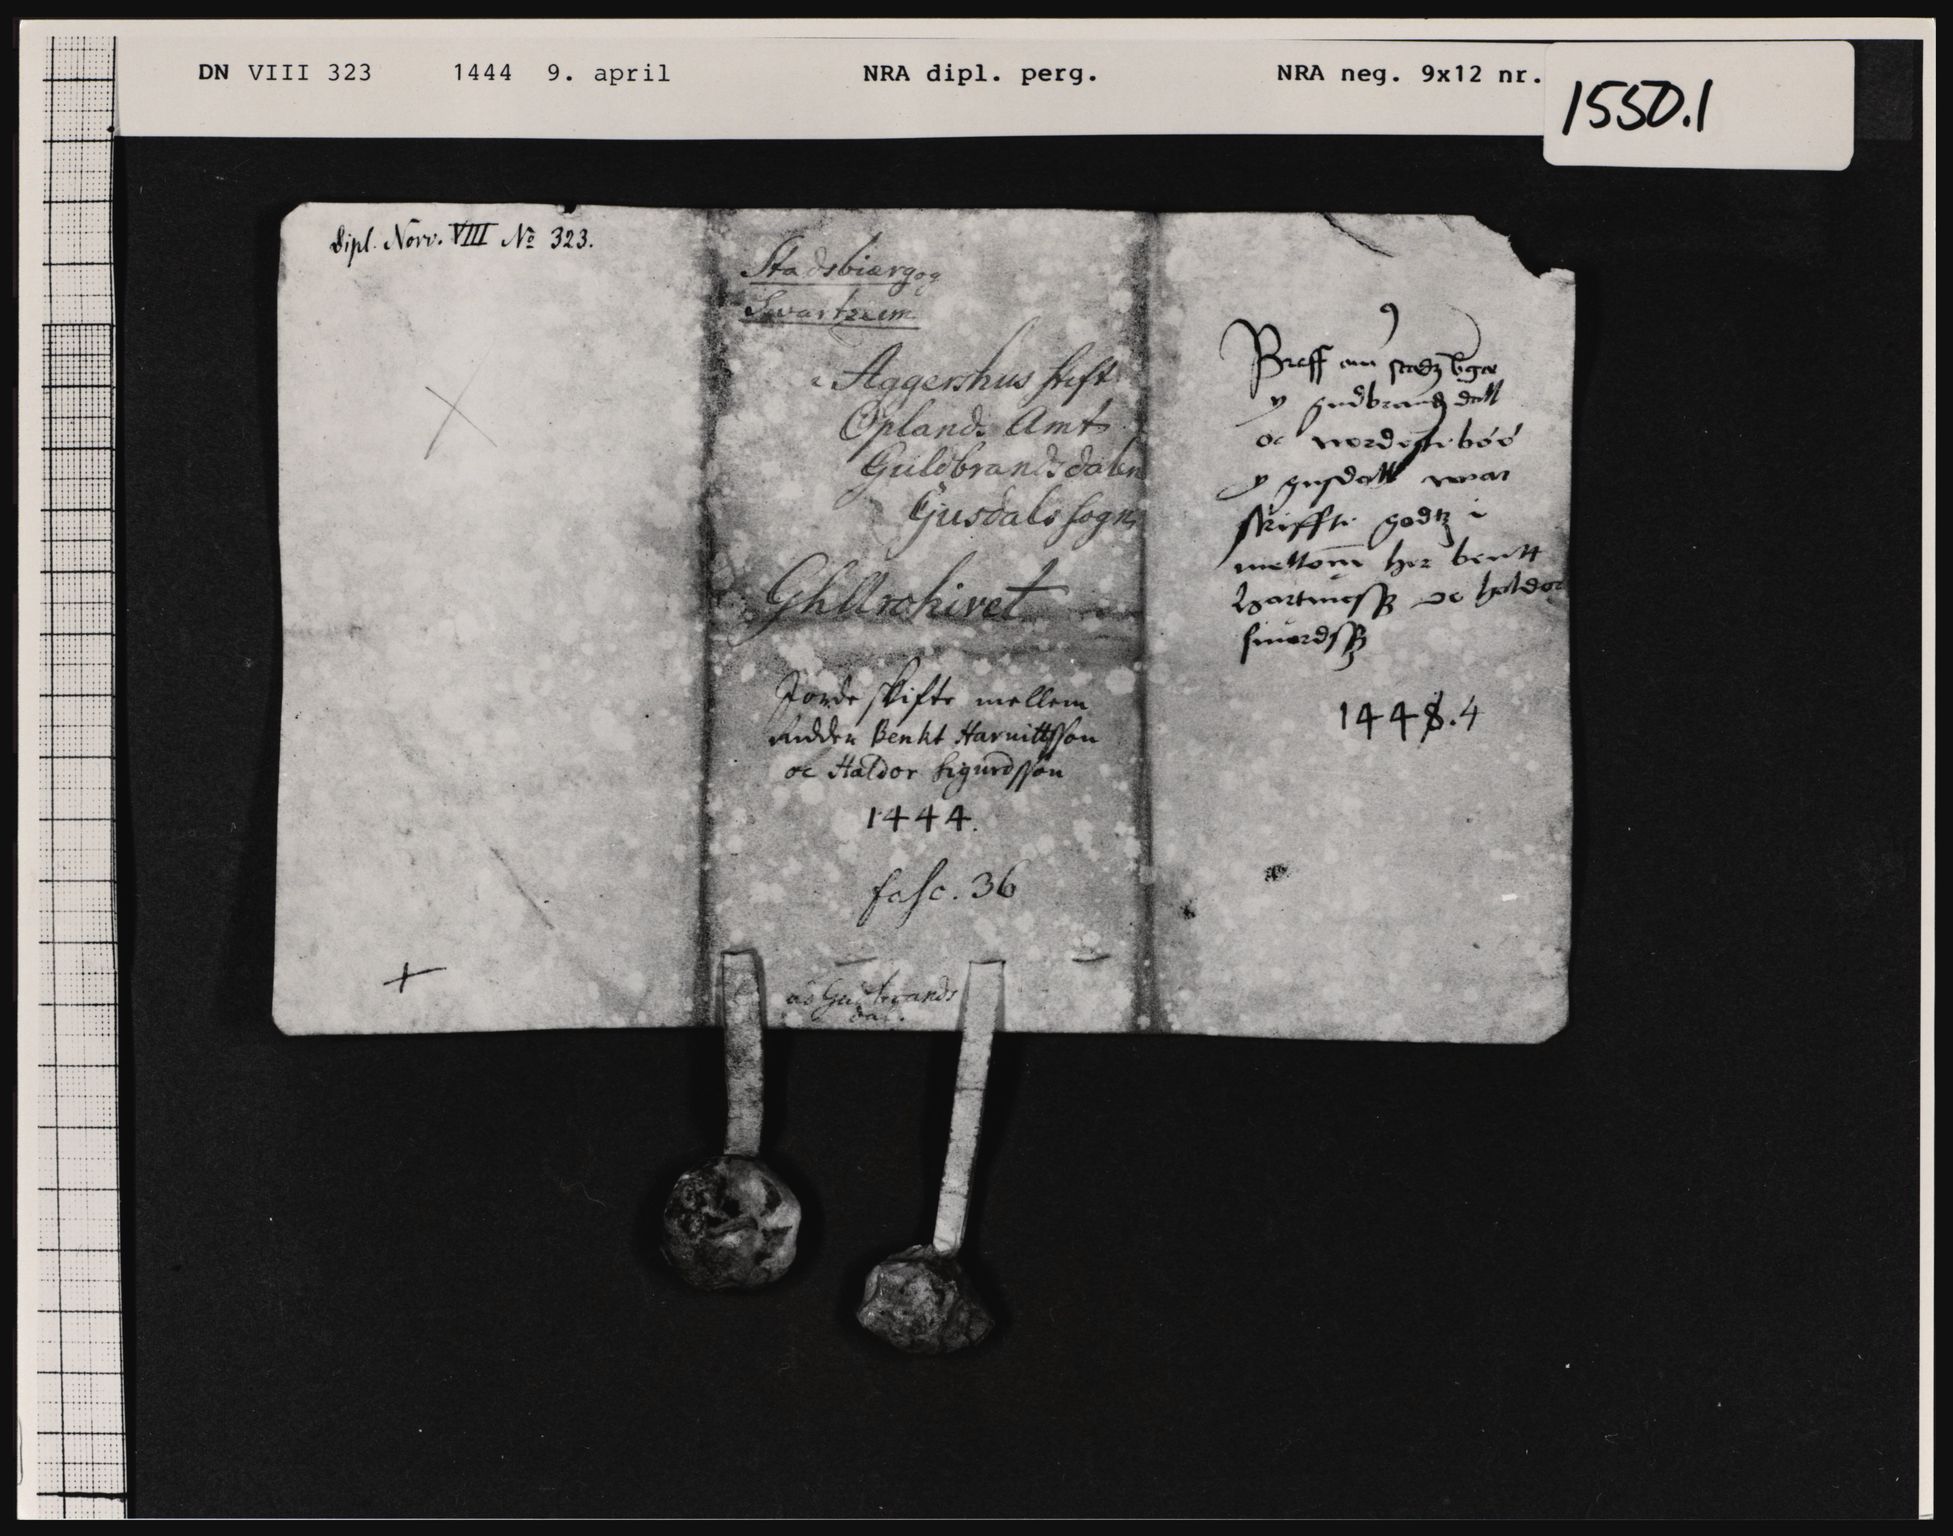 DN VIII 323 1444 9. april NRA dipl. perg. NRA neg. 9x12 nr.
1550.1
Dipl. Norv. VIII No 323.
Stadsbiærg og
Swartzeim
i Aggershus stift
Oplands Amt
Guldbrandsdalen
Gusdals sogn
GhlArchivet
Jorde skifte mellem
Ridder Benkt Harnittsson
oc Haldor Sigurdsson
1444.
fasc. 36
as Gudbrands
dal.
9
Breff om
y gudbrandz dall
oc nordeste böö
y gusdall war
skiffte godtz i
mellom her bentt
hartnessß oc haldor
siuordsß
1448.4